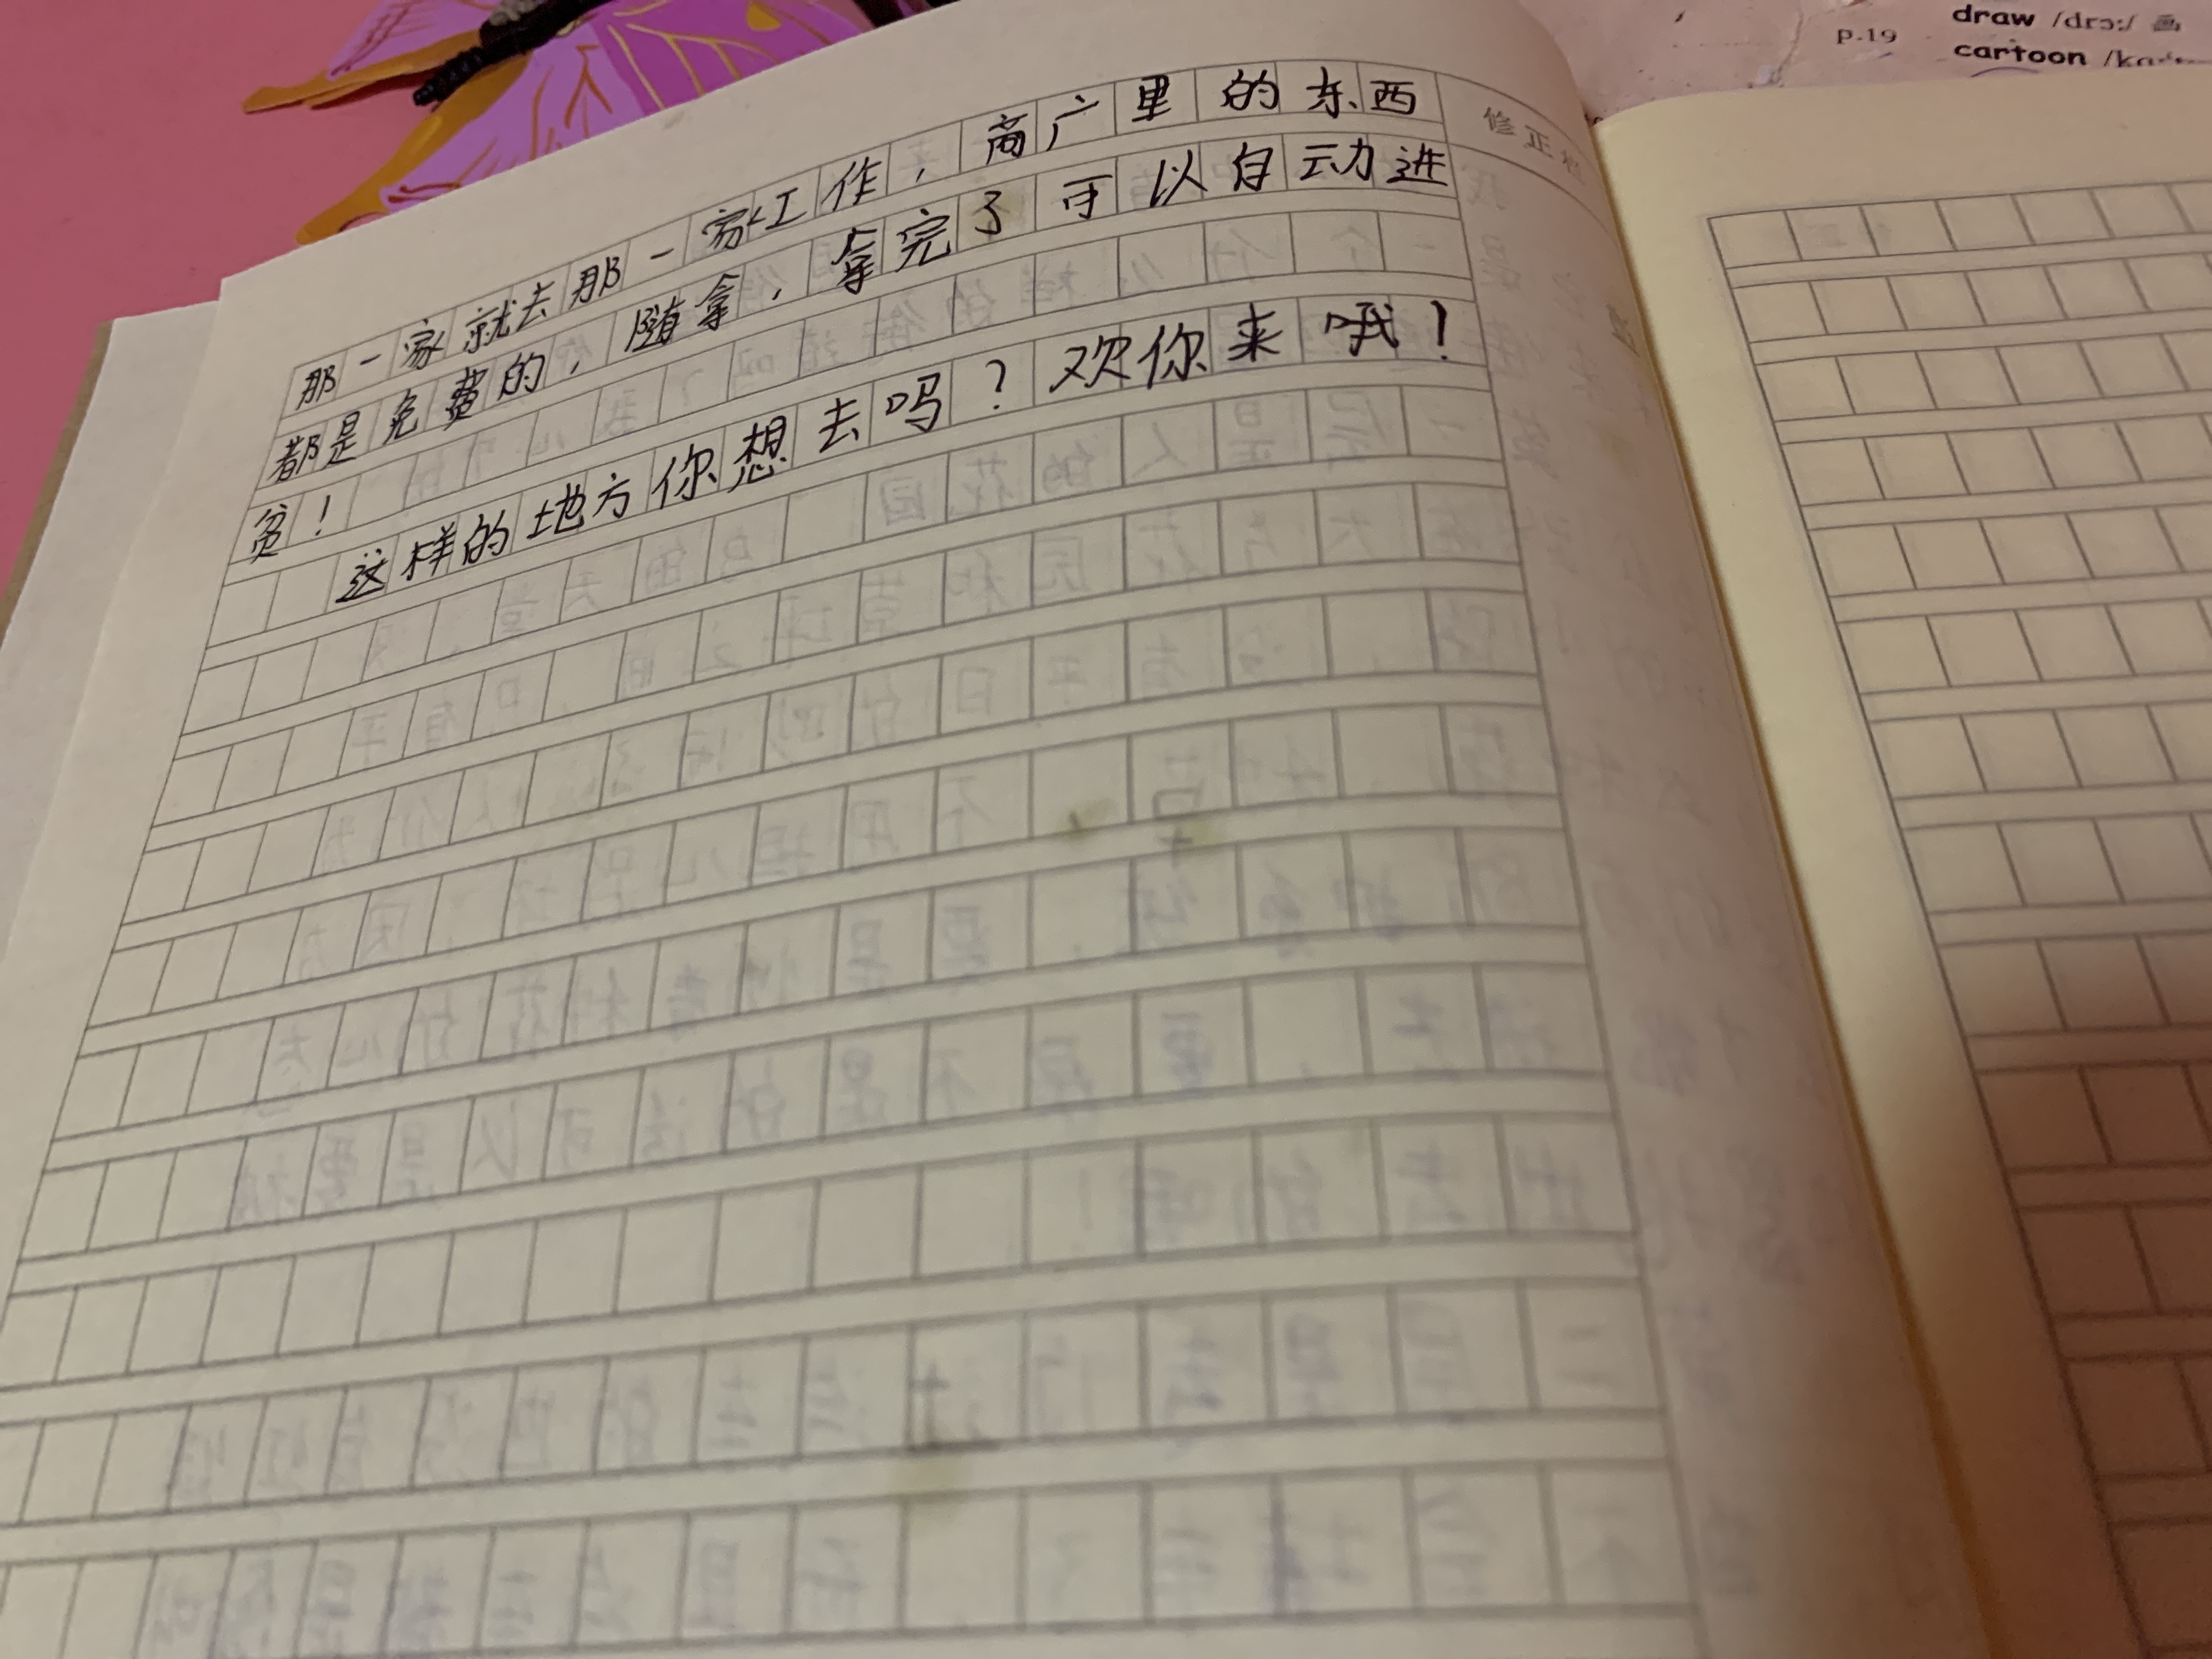 那一家就去那一家工作，商广里的东西
都是免费的，随拿，拿完了可以自动进
货！
这样的地方你想去吗？欢你来哦！
修正
P.19
draw /drɔ:/ 画
cartoon